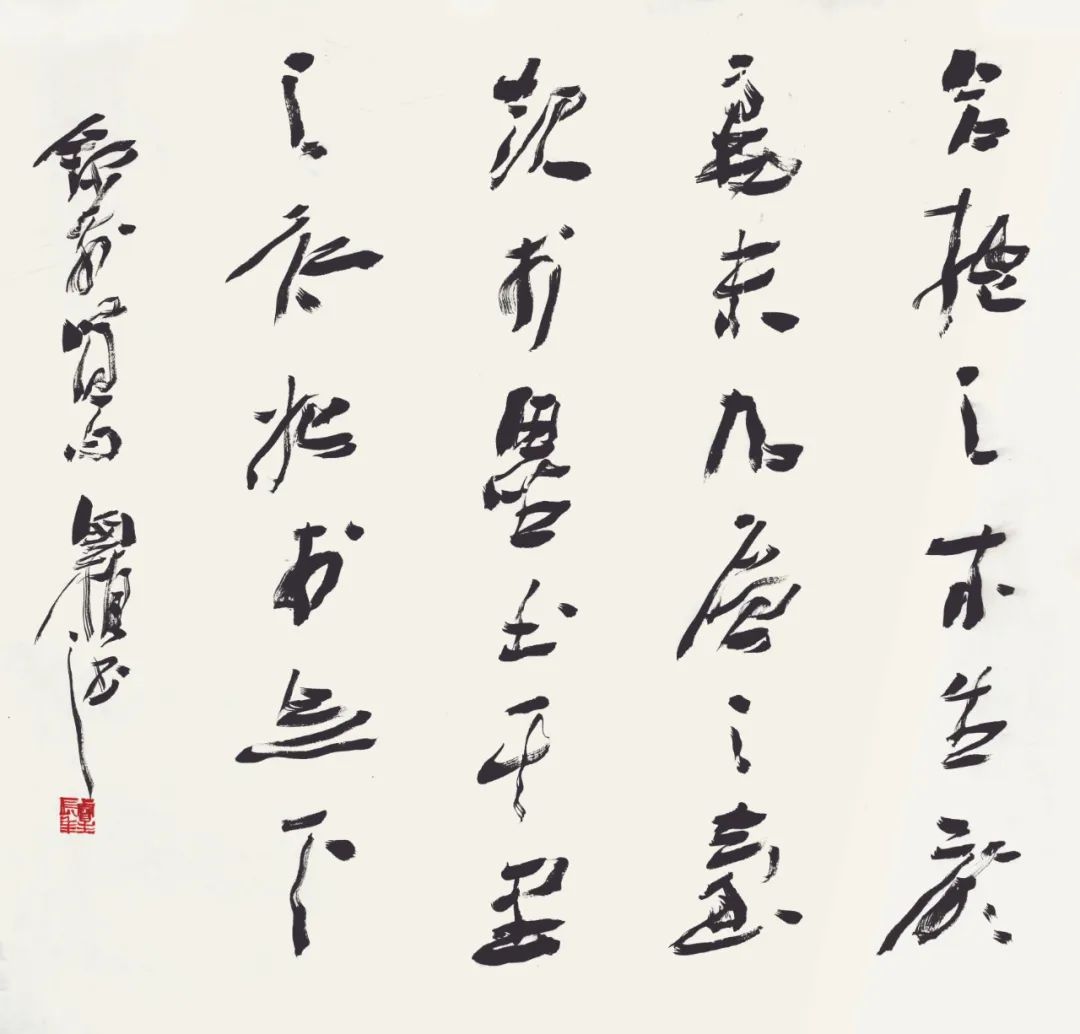 合抱之木生於
毫末九層之臺
起於壘土千里
之行始於足下
錄前賢句 書